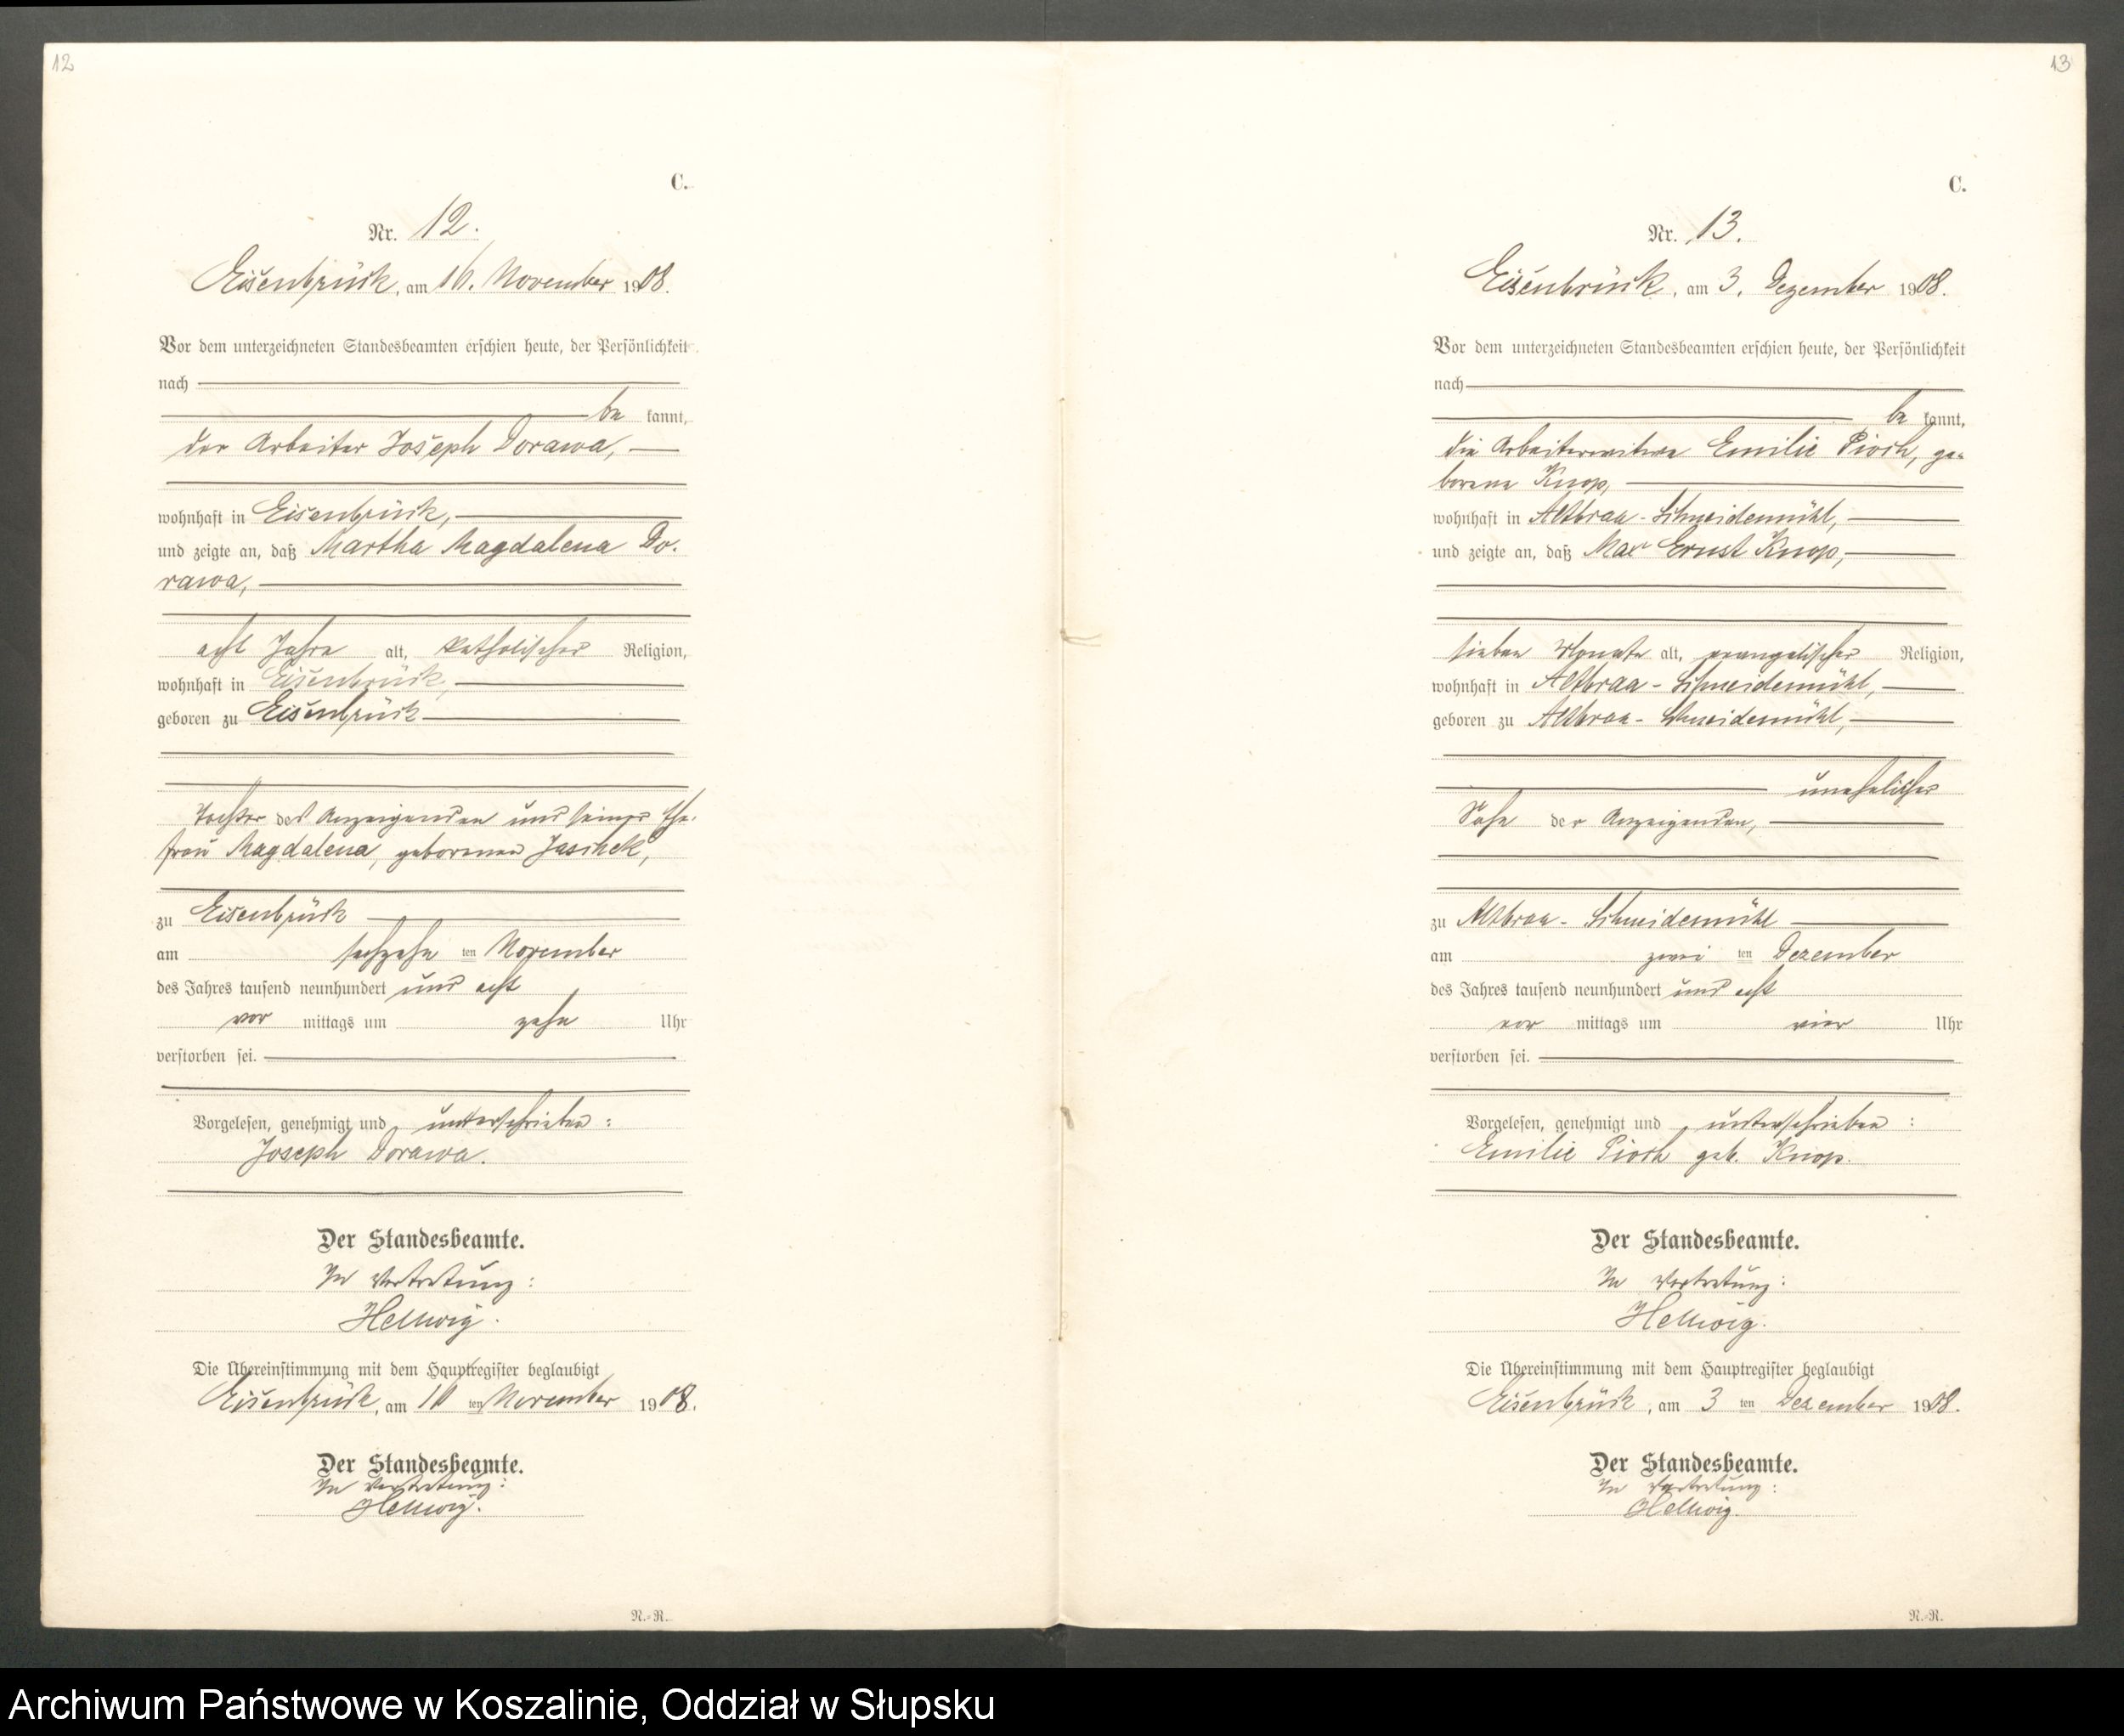 12
C.
Nr. 12.
Eisenbrück, am 16. November 1908.
Vor dem unterzeichneten Standesbeamten erschien heute, der Persönlichkeit
nach
be kannt,
der Arbeiter Joseph Dorawa,
wohnhaft in Eisenbrück,
und zeigte an, daß Martha Magdalena Do-
rawa,
acht Jahre alt, katholischer Religion,
wohnhaft in Eisenbrück,
geboren zu Eisenbrück
Tochter des Anzeigenden und seiner Ehe-
frau Magdalena, geborenen Jasinek,
zu Eisenbrück
am sechzehn ten November
des Jahres tausend neunhundert und acht
vor mittags um zehn Uhr
verstorben sei.
Vorgelesen, genehmigt und unterschrieben:
Joseph Dorawa.
Der Standesbeamte.
In Vertretung:
Hellwig.
Die Übereinstimmung mit dem Hauptregister beglaubigt
Eisenbrück, am 16 ten November 1908.
Der Standesbeamte.
In Vertretung:
Hellwig.
N.-R.
13
C.
Nr. 13.
Eisenbrück, am 3. Dezember 1908.
Vor dem unterzeichneten Standesbeamten erschien heute, der Persönlichkeit
nach
be kannt,
die Arbeiterwitwe Emilie Pioch, ge-
borene Knop,
wohnhaft in Altbraa-Schneidemühl,
und zeigte an, daß Max Ernst Knop,
sieben Monate alt, evangelischer Religion,
wohnhaft in Altbraa-Schneidemühl,
geboren zu Altbraa-Schneidemühl,
unehelicher
Sohn der Anzeigenden,
zu Altbraa-Schneidemühl
am zwei ten Dezember
des Jahres tausend neunhundert und acht
vor mittags um vier Uhr
verstorben sei.
Vorgelesen, genehmigt und unterschrieben:
Emilie Pioch geb. Knop.
Der Standesbeamte.
In Vertretung:
Hellwig.
Die Übereinstimmung mit dem Hauptregister beglaubigt
Eisenbrück, am 3 ten Dezember 1908.
Der Standesbeamte.
In Vertretung:
Hellwig.
N.-R.
Archiwum Państwowe w Koszalinie, Oddział w Słupsku